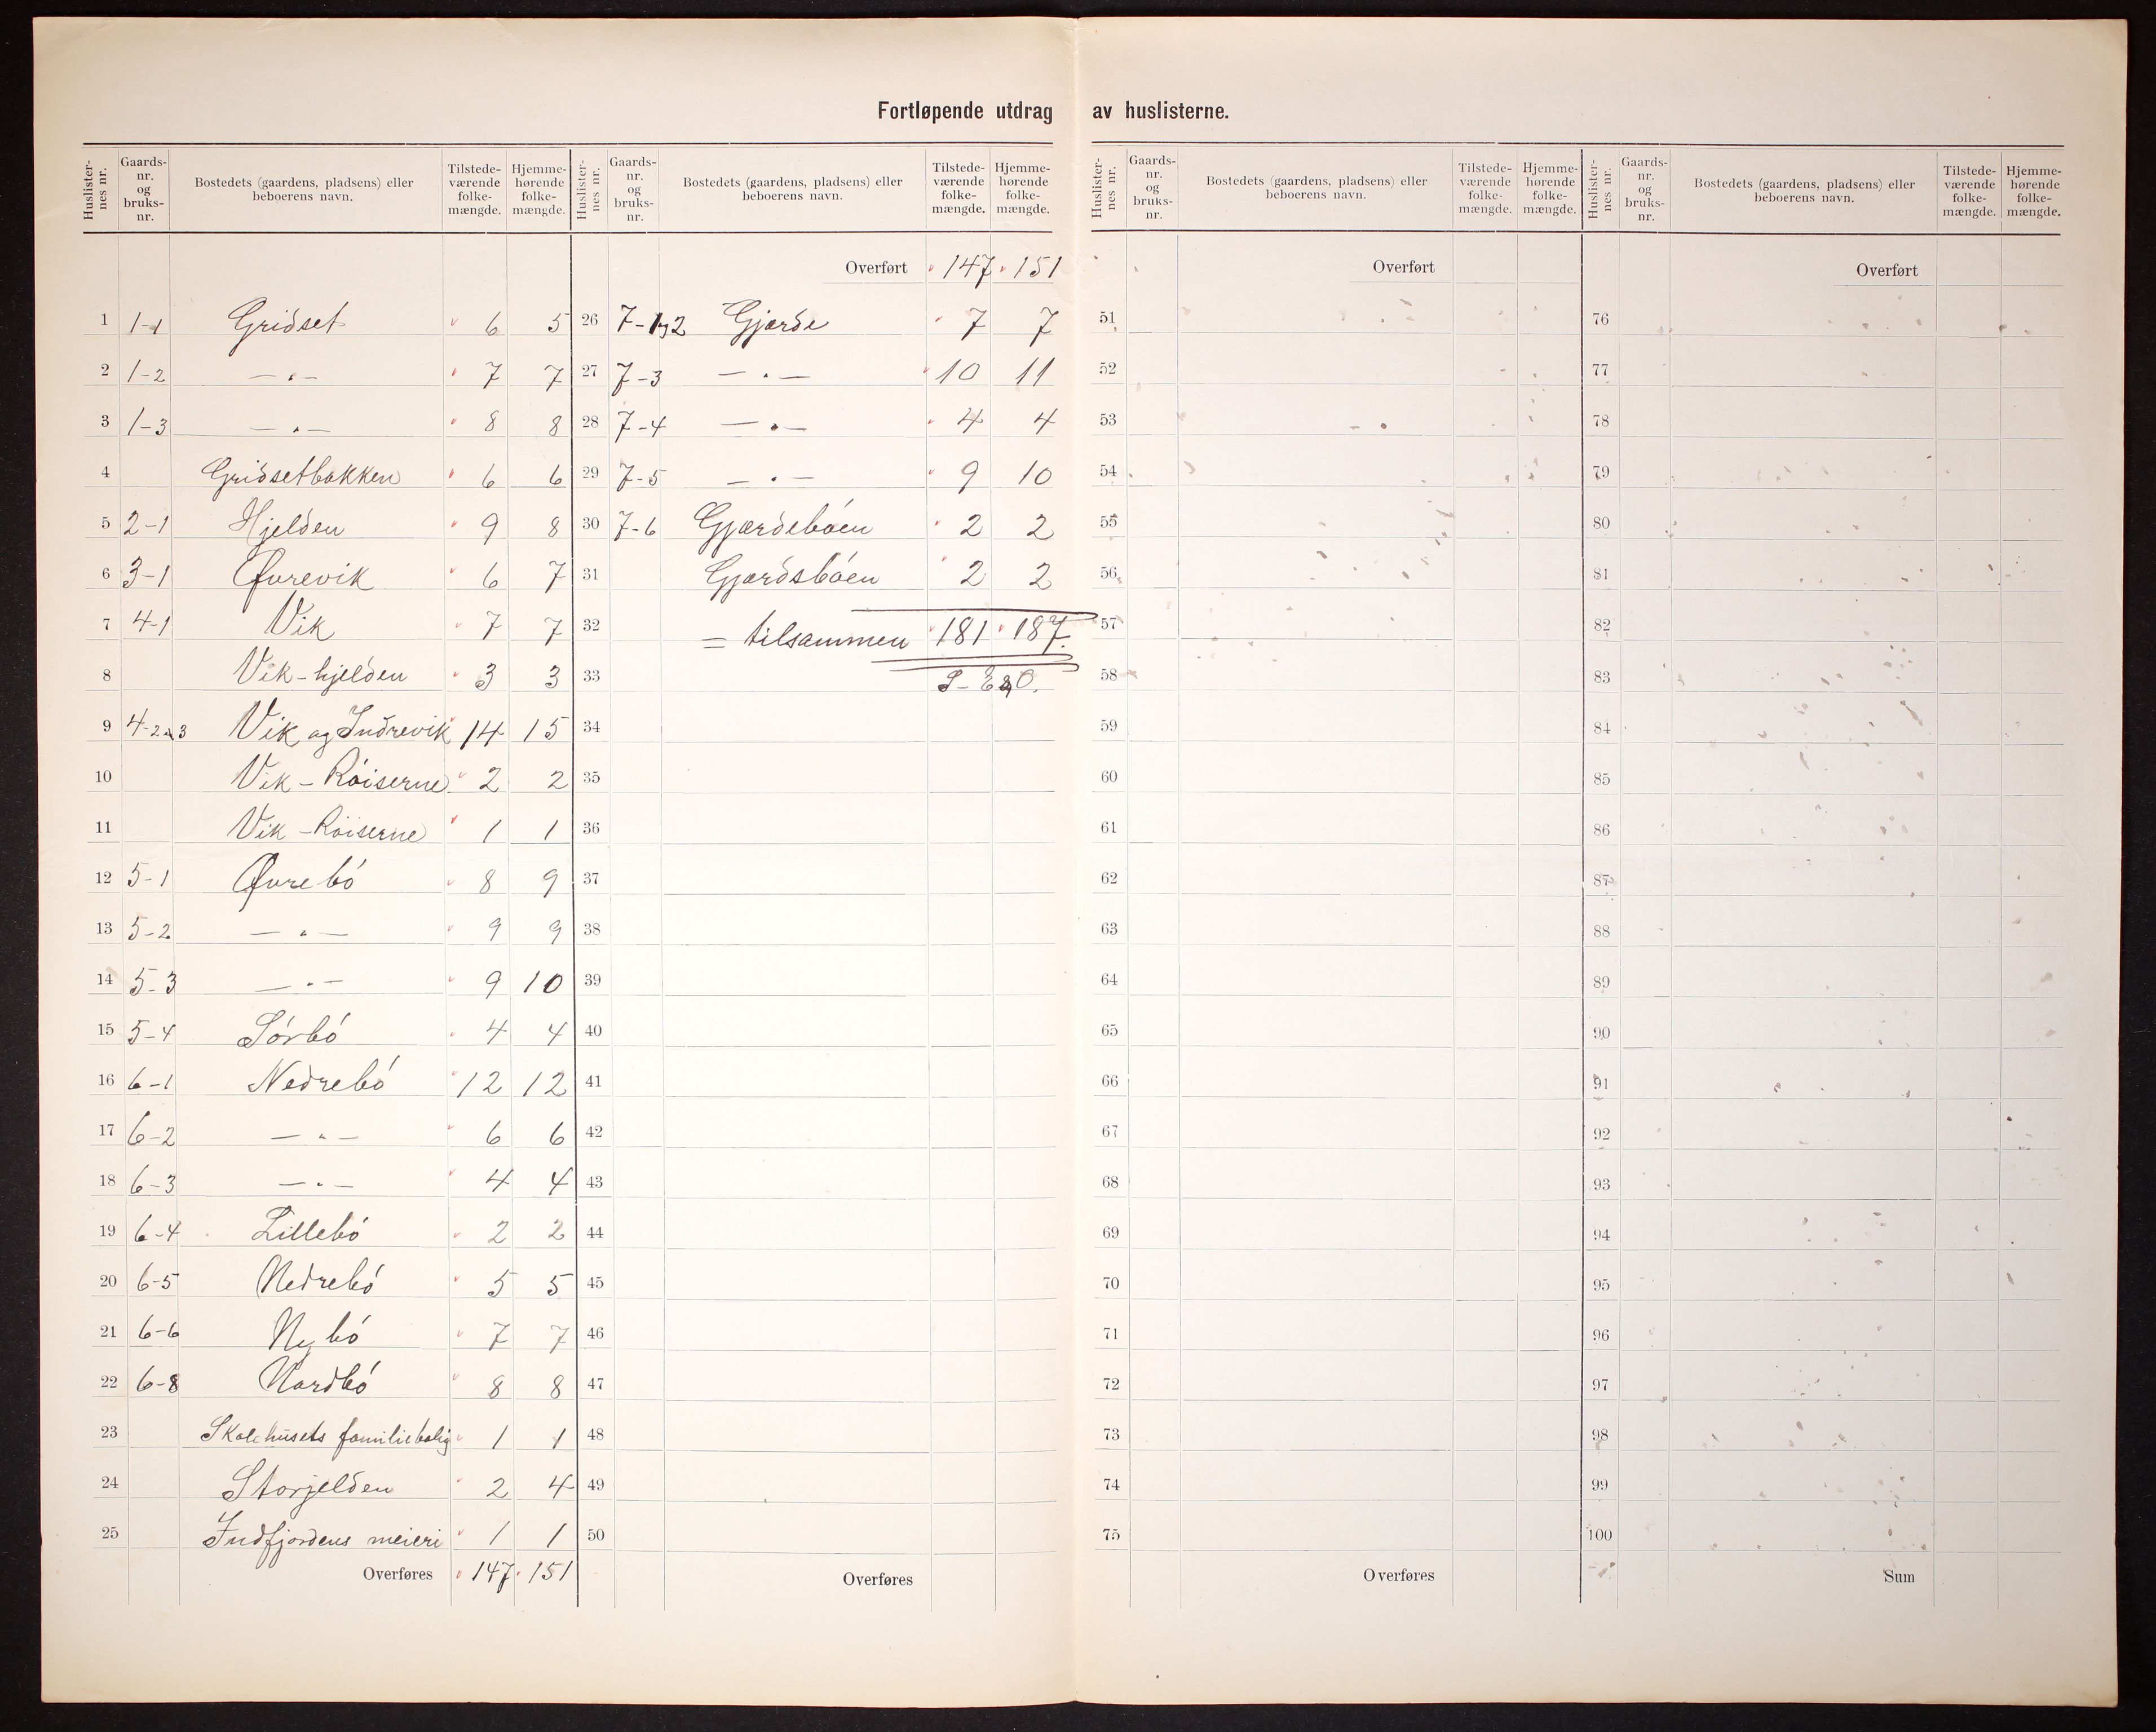 Fortløpende utdrag av huslisterne.
Huslister-nes nr. Gaards-nr. og bruks-nr. Bostedets (gaardens, pladsens) eller beboerens navn. Tilstede-værende folke-mængde. Hjemme-hørende folke-mængde.
1 1-1 Gridset 6 5
2 1-2 — „ — 7 7
3 1-3 — „ — 8 8
4 Gridsetbakken 6 6
5 2-1 Hjelden 9 8
6 3-1 Øvrevik 6 7
7 4-1 Vik 7 7
8 Vik-hjelden 3 3
9 4-2 3 Vik og Indrevik 14 15
10 Vik - Róiserne 2 2
11 Vik - Róiserne 1 1
12 5-1 Øvrebó 8 9
13 5-2 — „ — 9 9
14 5-3 — „ — 9 10
15 5-4 Sórbó 4 4
16 6-1 Nedrebó 12 12
17 6-2 — „ — 6 6
18 6-3 — „ — 4 4
19 6-4 Lillebó 2 2
20 6-5 Nedrebó 5 5
21 6-6 Nybó 7 7
22 6-8 Nordbó 8 8
23 Skolehusets familiebolig 1 1
24 Storjelden 2 4
25 Indfjordens meieri 1 1
Overføres 147 151
Huslister-nes nr. Gaards-nr. og bruks-nr. Bostedets (gaardens, pladsens) eller beboerens navn. Tilstede-værende folke-mængde. Hjemme-hørende folke-mængde.
Overført 147 151
26 7-1og2 Gjærde 7 7
27 7-3 — „ — 10 11
28 7-4 — „ — 4 4
29 7-5 — „ — 9 10
30 7-6 Gjærdebóen 2 2
31 Gjærdsbóen 2 2
32 = tilsammen 181 187.
33
34
35
36
37
38
39
40
41
42
43
44
45
46
47
48
49
50
Overføres
Huslister-nes nr. Gaards-nr. og bruks-nr. Bostedets (gaardens, pladsens) eller beboerens navn. Tilstede-værende folke-mængde. Hjemme-hørende folke-mængde.
Overført
51
52
53
54
55
56
57
58
59
60
61
62
63
64
65
66
67
68
69
70
71
72
73
74
75
Overføres
Huslister-nes nr. Gaards-nr. og bruks-nr. Bostedets (gaardens, pladsens) eller beboerens navn. Tilstede-værende folke-mængde. Hjemme-hørende folke-mængde.
Overført
76
77
78
79
80
81
82
83
84
85
86
87
88
89
90
91
92
93
94
95
96
97
98
99
100
Sum